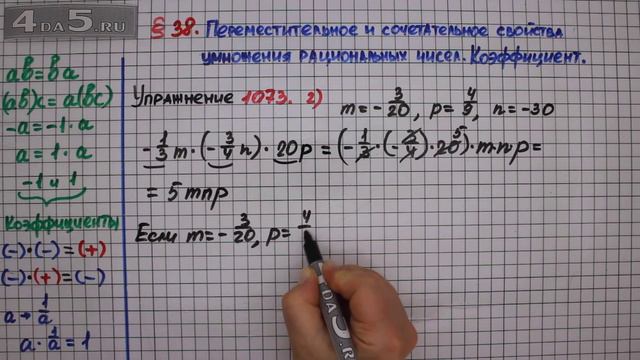 4DA5.RU
§ 38. Переместительное и сочетательное свойства
умножения рациональных чисел. Коэффициент.
ab = ba
(ab)c = a(bc)
-a = -1·a
a = 1·a
-1 и 1
Коэффициенты
(-)·(-) = (+)
(-)·(+) = (-)
a → 1/a
a · 1/a = 1
Упражнение 1073. 2) m = -3/20, p = 4/9, n = -30
-1/3 m · (-3/4 n) · 20p = (-1/3 · (-3/4) · 20 5) · mnp =
= 5mnp
Если m = -3/20, p = 4/
4DA5.RU